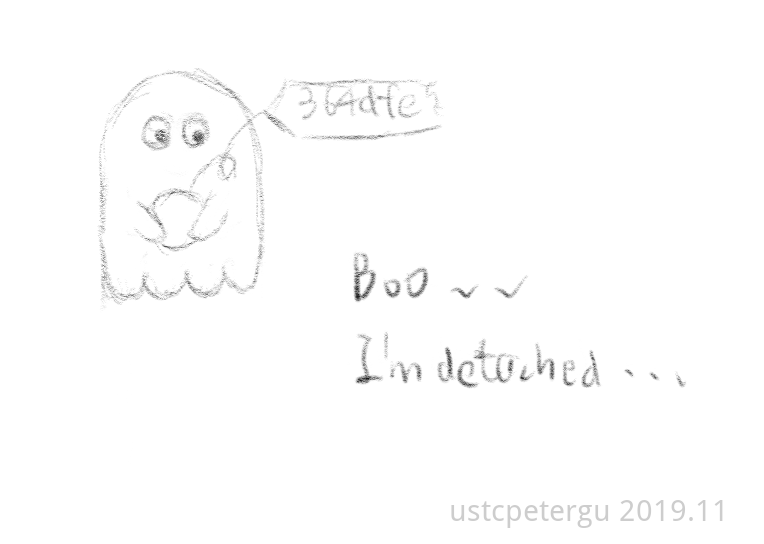 364dfe5
Boo ~~
I'm detached...
ustcpetergu 2019.11